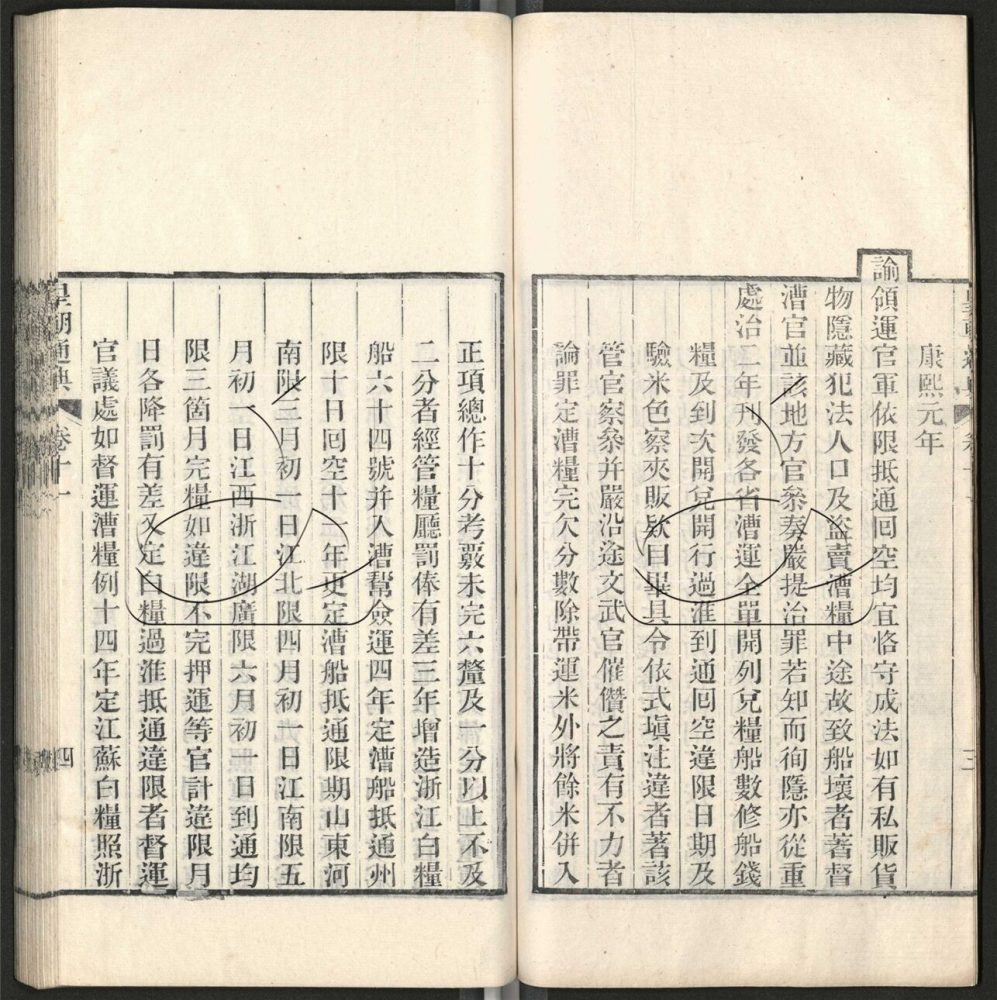 康熙元年
諭領運官軍依限抵通囘空均宜恪守成法如有私販貨
物隱藏犯法人口及盜賣漕糧中途故致船壞者著督
漕官並該地方官叅奏嚴提治罪若知而徇隱亦從重
處治二年刋發各省漕運全單開列兌糧船數修船錢
糧及到次開兌開行過淮到通囘空違限日期及
驗米色察夾販欵目畢具令依式塡注違者著該
管官察叅并嚴沿途文武官催儹之責有不力者
論罪定漕糧完欠分數除帶運米外將餘米併入
正項總作十分考覈未完六釐及一分以上不及
二分者經管糧廳罰俸有差三年增造浙江白糧
船六十四號并入漕幫僉運四年定漕船抵通州
限十日囘空十一年更定漕船抵通限期山東河
南限三月初一日江北限四月初一日江南限五
月初一日江西浙江湖廣限六月初一日到通均
限三箇月完糧如違限不完押運等官計違限月
日各降罰有差又定白糧過淮抵通違限者督運
官議處如督運漕糧例十四年定江蘇白糧照浙
皇朝通典
卷十一
四